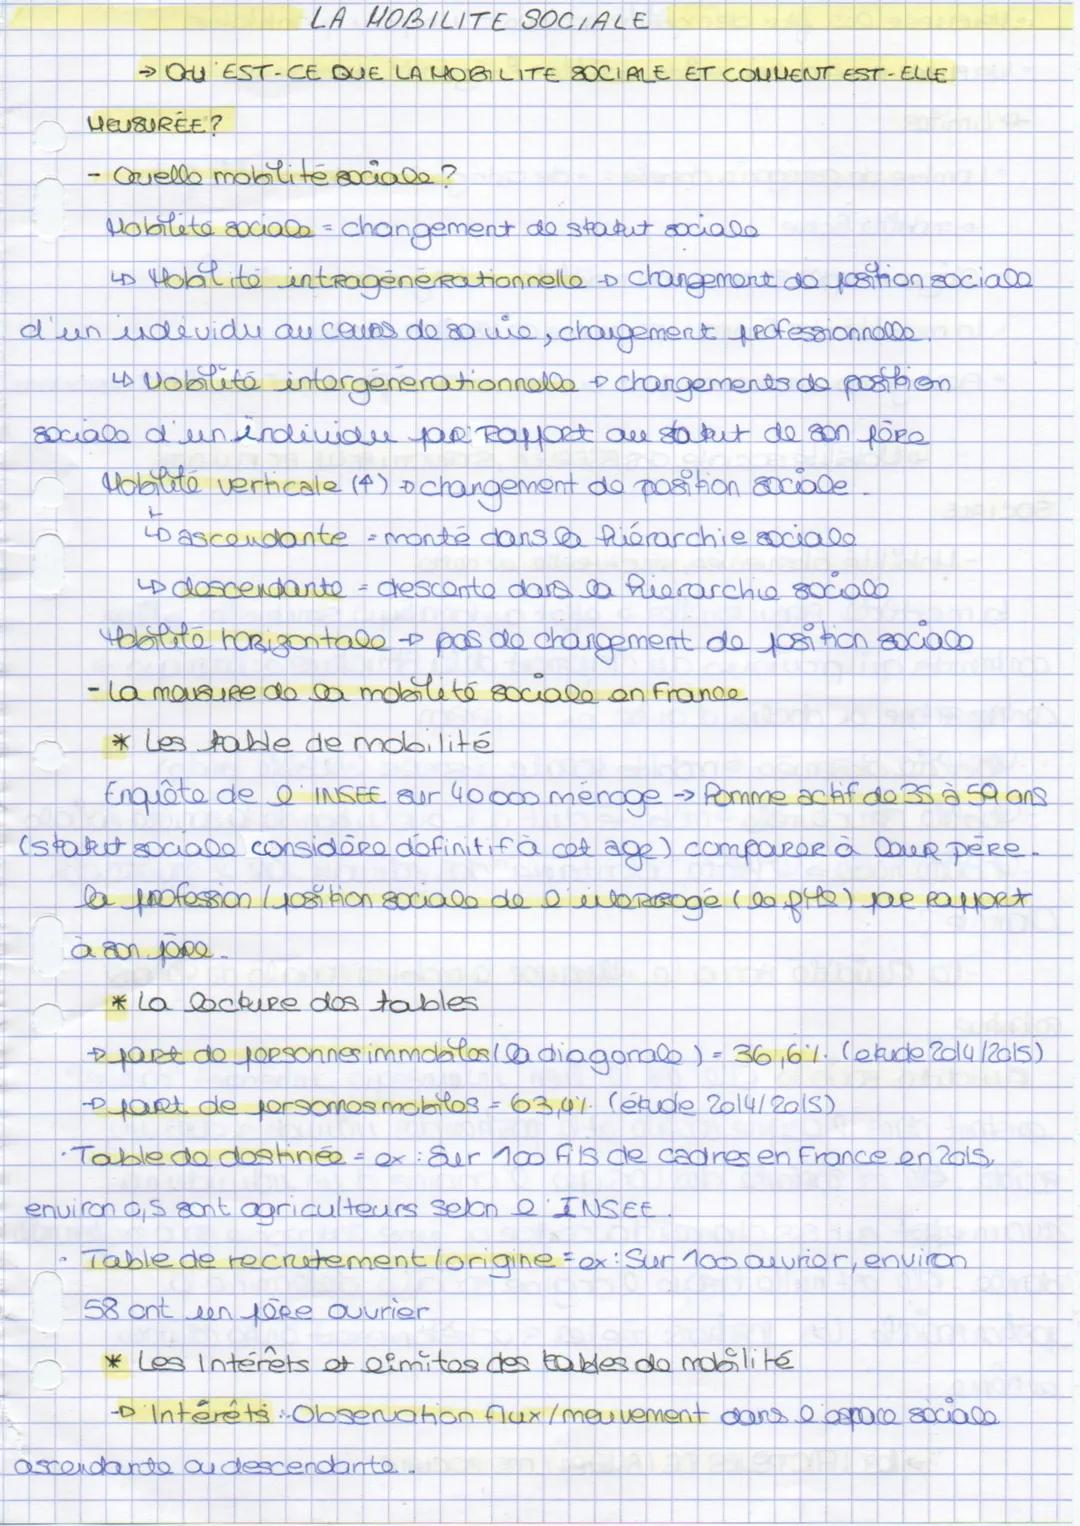 LA MOBILITE SOCIALE
→ QU'EST-CE QUE LA MOBILITE SOCIALE ET COMMENT EST-ELLE
MEUSURÉE?
- Quelle mobilité sociale?
Mobilité sociale = changement de statut sociale
↳ Mobilité intragénérationnelle → changement de position sociale
d'un individu au cours de sa vie, changement professionnelle.
↳ Mobilité intergénérationnelle → changements de position
sociale d'un individu par rapport au statut de son père
Mobilité verticale (↑) → changement de position sociale.
↳ ascendante = monté dans la hiérarchie sociale
↳ descendante = descente dans la hierarchie sociale
Mobilité horizontale → pas de changement de position sociale
- La mausure de la mobilité sociale en France
* Les table de mobilité
Enquête de l'INSEE sur 40 000 ménage → Homme actif de 35 à 59 ans
(statut sociale considère définitif à cet age) comparer à leur père.
la profession / position sociale de l'interrogé (le fils) par rapport
à son père.
* La lecture des tables
→ part de personnes immobiles (la diagonale) = 36,6%. (etude 2014/2015)
→ part de personnes mobiles = 63,4%. (étude 2014/2015)
· Table de destinée = ex : Sur 100 fils de cadres en France en 2015,
environ 0,5 sont agriculteurs selon l'INSEE.
· Table de recrutement / origine = ex : Sur 100 ouvrier, environ
58 ont un père ouvrier
* Les Intérêts et limites des tables de mobilité
→ Intérêts : Observation flux / meuvement dans l'espace sociale
ascendante ou descendante.